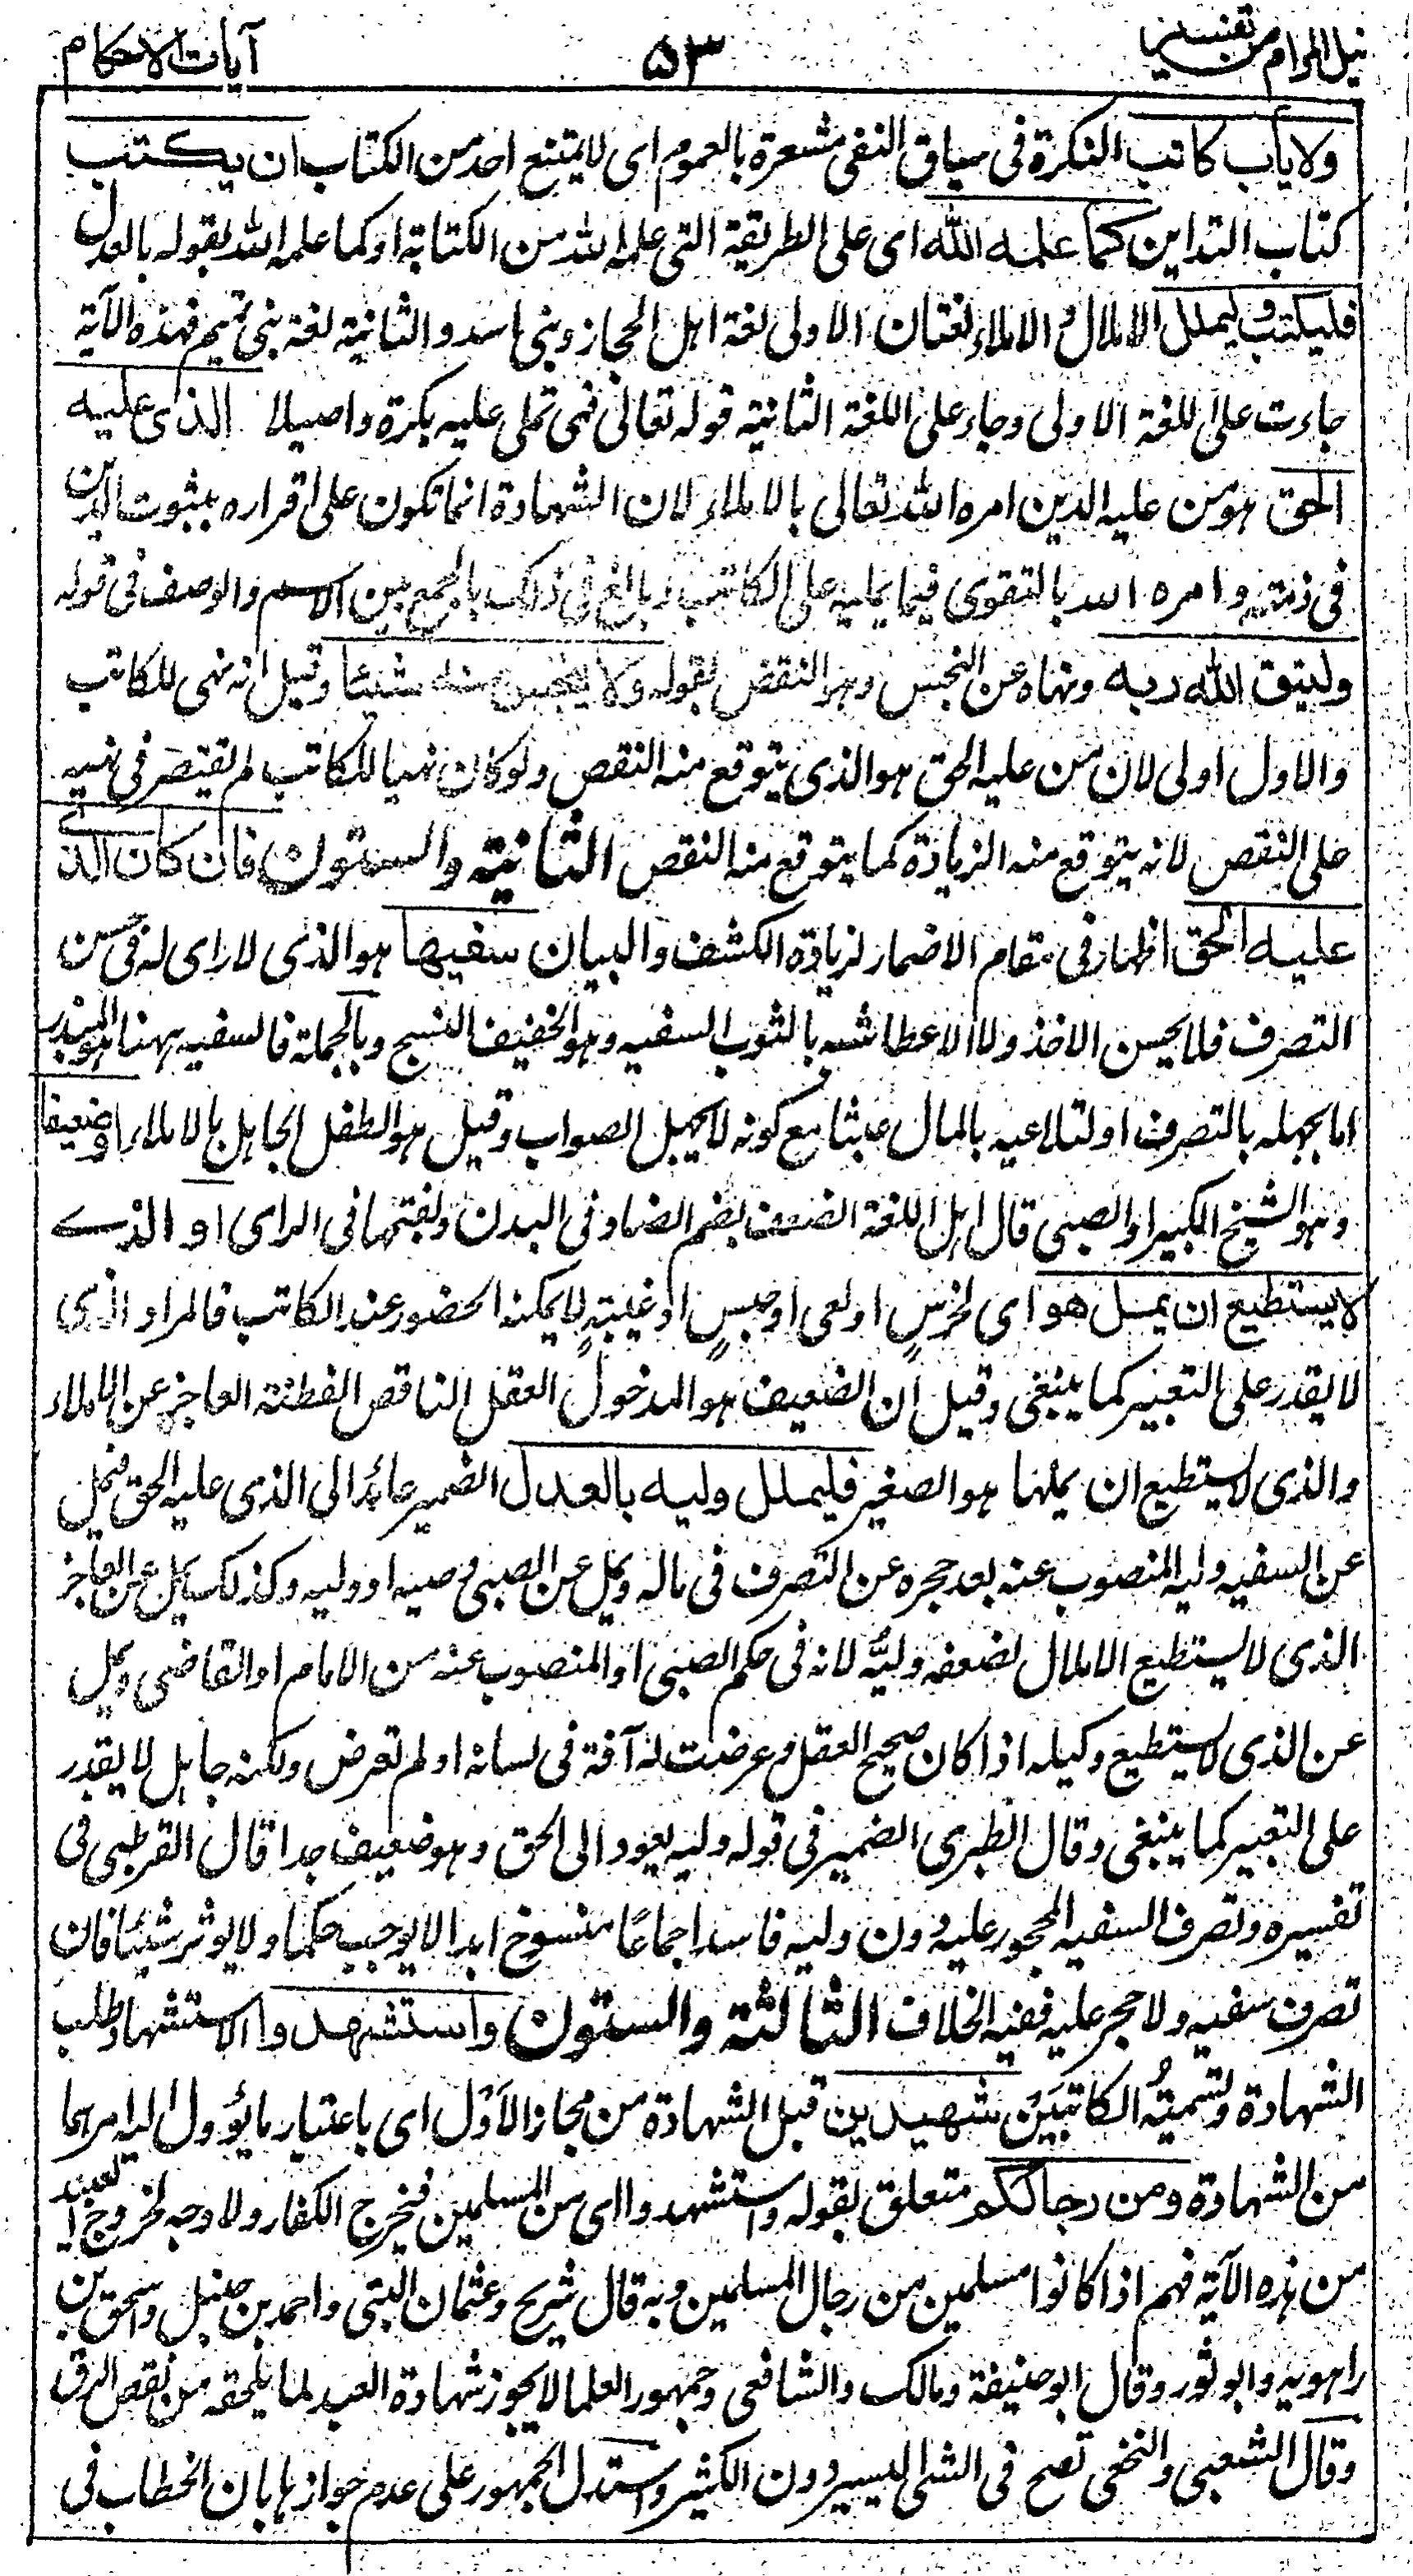 نيل المرام من تفسير
٥٣
آيات الاحكام
ولا ياب كاتب النكرة فى سياق النفى مشعرة بالعموم اى لا يمتنع احد من الكتاب ان يكتب
كتاب التداين كما علمه الله اى على الطريقة التى علمه الله من الكتابة او كما علمه الله بقوله بالعدل
فليكتب وليملل الاملال والاملاء لغتان الاولى لغة اهل الحجاز وبنى اسد والثانية لغة بنى تميم فهذه الآية
جاءت على اللغة الاولى وجاء على اللغة الثانية قوله تعالى فهى تملى عليه بكرة واصيلا الذى عليه
الحق هو من عليه الدين امره الله تعالى بالاملاء لان الشهادة انما تكون على اقراره بثبوت الدين
فى ذمته وامره الله بالتقوى فيما يمليه على الكاتب وبالغ فى ذلك بالجمع بين الاسم والوصف فى قوله
وليتق الله ربه ونهاه عن البخس وهو النقص بقوله ولا يبخس منه شيئا وقيل انه نهى للكاتب
والاول اولى لان من عليه الحق هو الذى يتوقع منه النقص ولو كان نهيا للكاتب لم يقتصر فى نهيه
على النقص لانه يتوقع منه الزيادة كما يتوقع منه النقص الثانية والستون فان كان الذے
عليه الحق اظهار فى مقام الاضمار لزيادة الكشف والبيان سفيها هو الذى لا راى له فى حسن
التصرف فلا يحسن الاخذ ولا الاعطا شبه بالثوب السفيه وهو الخفيف النسج وبالجملة فالسفيه ههنا هو المبذر
اما بجهله بالتصرف او لتلاعبه بالمال عبثا مع كونه لا يجهل الصواب وقيل هو الطفل الجاهل بالاملاء او ضعيفا
وهو الشيخ الكبير او الصبى قال اهل اللغة الضعف بضم الضاد فى البدن وبفتحها فى الراى او الذے
لا يستطيع ان يمل هو اى لخرسٍ او لعى او حبسٍ او غيبةٍ لا يمكنه الحضور عند الكاتب فالمراد الذى
لا يقدر على التعبير كما ينبغى وقيل ان الضعيف هو المدخول العقل الناقص الفطنة العاجز عن الاملاء
والذى لا يستطيع ان يملها هو الصغير فليملل وليه بالعدل الضمير عائد الى الذى عليه الحق فيمل
عن السفيه وليه المنصوب عنه بعد حجره عن التصرف فى ماله ويمل عن الصبى وصيه او وليه وكذلك يمل عن العاجز
الذى لا يستطيع الاملال لضعفه وليُّه لانه فى حكم الصبى او المنصوب عنه من الامام او القاضى ويمل
عن الذى لا يستطيع وكيله اذا كان صحيح العقل وعرضت له آفة فى لسانه او لم تعرض ولكنه جاهل لا يقدر
على التعبير كما ينبغى وقال الطبرى الضمير فى قوله وليه يعود الى الحق وهو ضعيف جدا قال القرطبى فى
تفسيره وتصرف السفيه المحجور عليه دون وليه فاسد اجماعًا منسوخ ابدا لا يوجب حكما ولا يوثر شيئا فان
تصرف سفيه ولا حجر عليه ففيه الخلاف الثالثة والستون واستشهدوا الاستشهاد طلب
الشهادة وتسميةُ الكاتبَيْن شهيدين قبل الشهادة من مجاز الاَوْل اى باعتبار ما يؤول اليه امرهما
من الشهادة ومن رجالكم متعلق بقوله واستشهدوا اى من المسلمين فيخرج الكفار ولا وجه لخروج العبيد
من هذه الآية فهم اذا كانوا مسلمين من رجال المسلمين وبه قال شريح وعثمان البتى واحمد بن حنبل واسحق بن
راهويه وابو ثور وقال ابو حنيفة ومالك والشافعى وجمهور العلما لا يجوز شهادة العبد لما يلحقه من نقص الرق
وقال الشعبى والنخعى تصح فى الشى اليسير دون الكثير واستدل الجمهور على عدم جوازها بان الخطاب فى